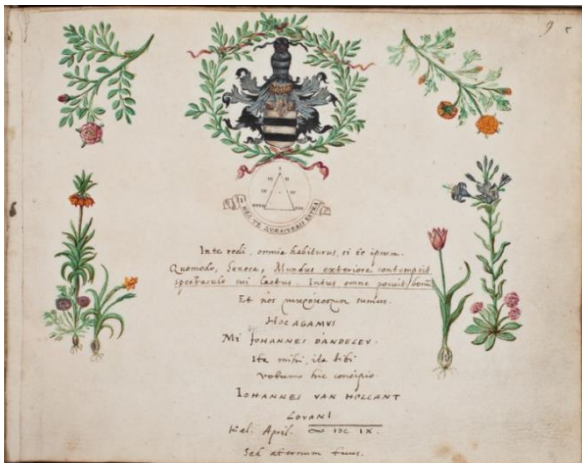 9 5
NEC TE QUAESIVERIS EXTRA
In te redi, omnia habiturus, si te ipsum.
Quomodo, Seneca, Mundus exteriora contempsit
spectaculo sui laetus. Intus omne posuit bonum
Et nos sumus.
HOC AGAMUS
Mi IOHANNES DANDELEY.
Ita mihi, ita tibi
hic concipio
IOHANNES VAN HOLLANT
LOVANI
Kal. April. IX.
Sed aeternum tuus.